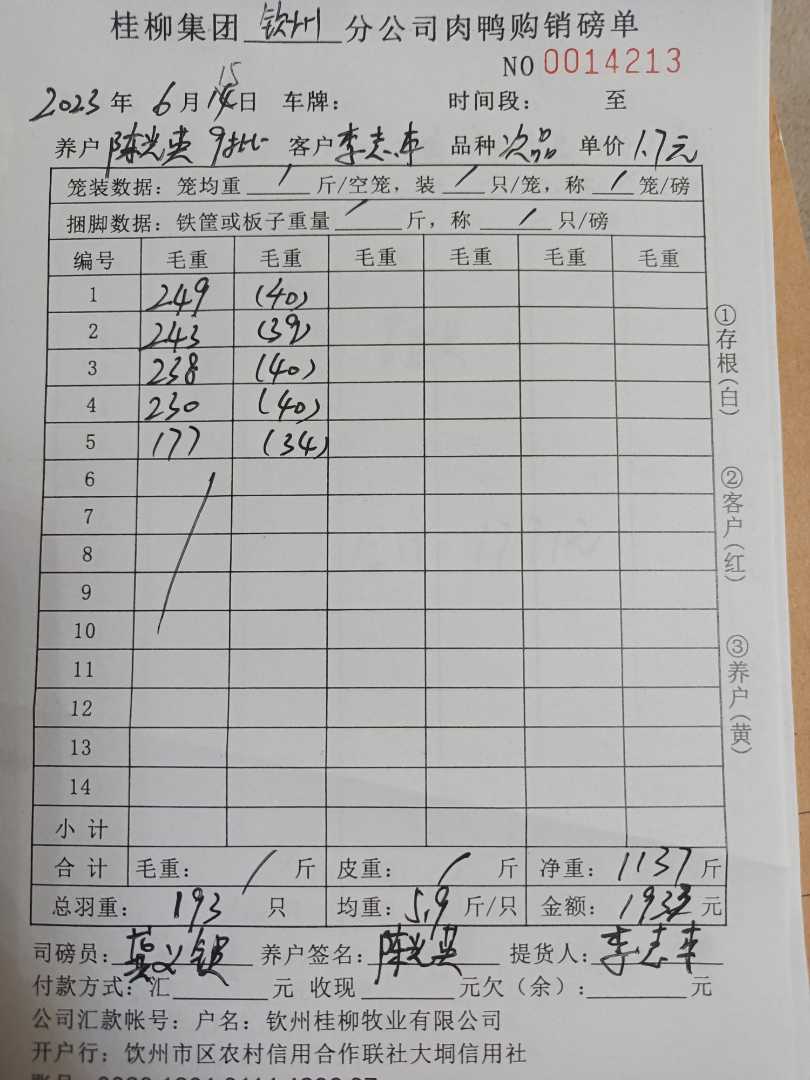 桂柳集团 钦州 分公司肉鸭购销磅单
NO 0014213
15
2023 年 6 月 14 日 车牌： 时间段： 至
养户 陈光英 9批 客户 李志车 品种 次品 单价 1.7元
笼装数据：笼均重 / 斤/空笼，装 / 只/笼，称 / 笼/磅
捆脚数据：铁筐或板子重量 / 斤，称 / 只/磅
编号 毛重 毛重 毛重 毛重 毛重 毛重
1 249 (40)
2 243 (39)
3 238 (40)
4 230 (40)
5 177 (34)
6
7
8
9
10
11
12
13
14
小计
合计 毛重： / 斤 皮重： / 斤 净重： 1137 斤
总羽重： 193 只 均重： 5.9 斤/只 金额： 1933 元
司磅员： 养户签名：陈光英 提货人：李志车
付款方式：汇 元 收现 元欠（余）： 元
公司汇款帐号：户名：钦州桂柳牧业有限公司
开户行：钦州市区农村信用合作联社大垌信用社
①存根(白)
②客户(红)
③养户(黄)